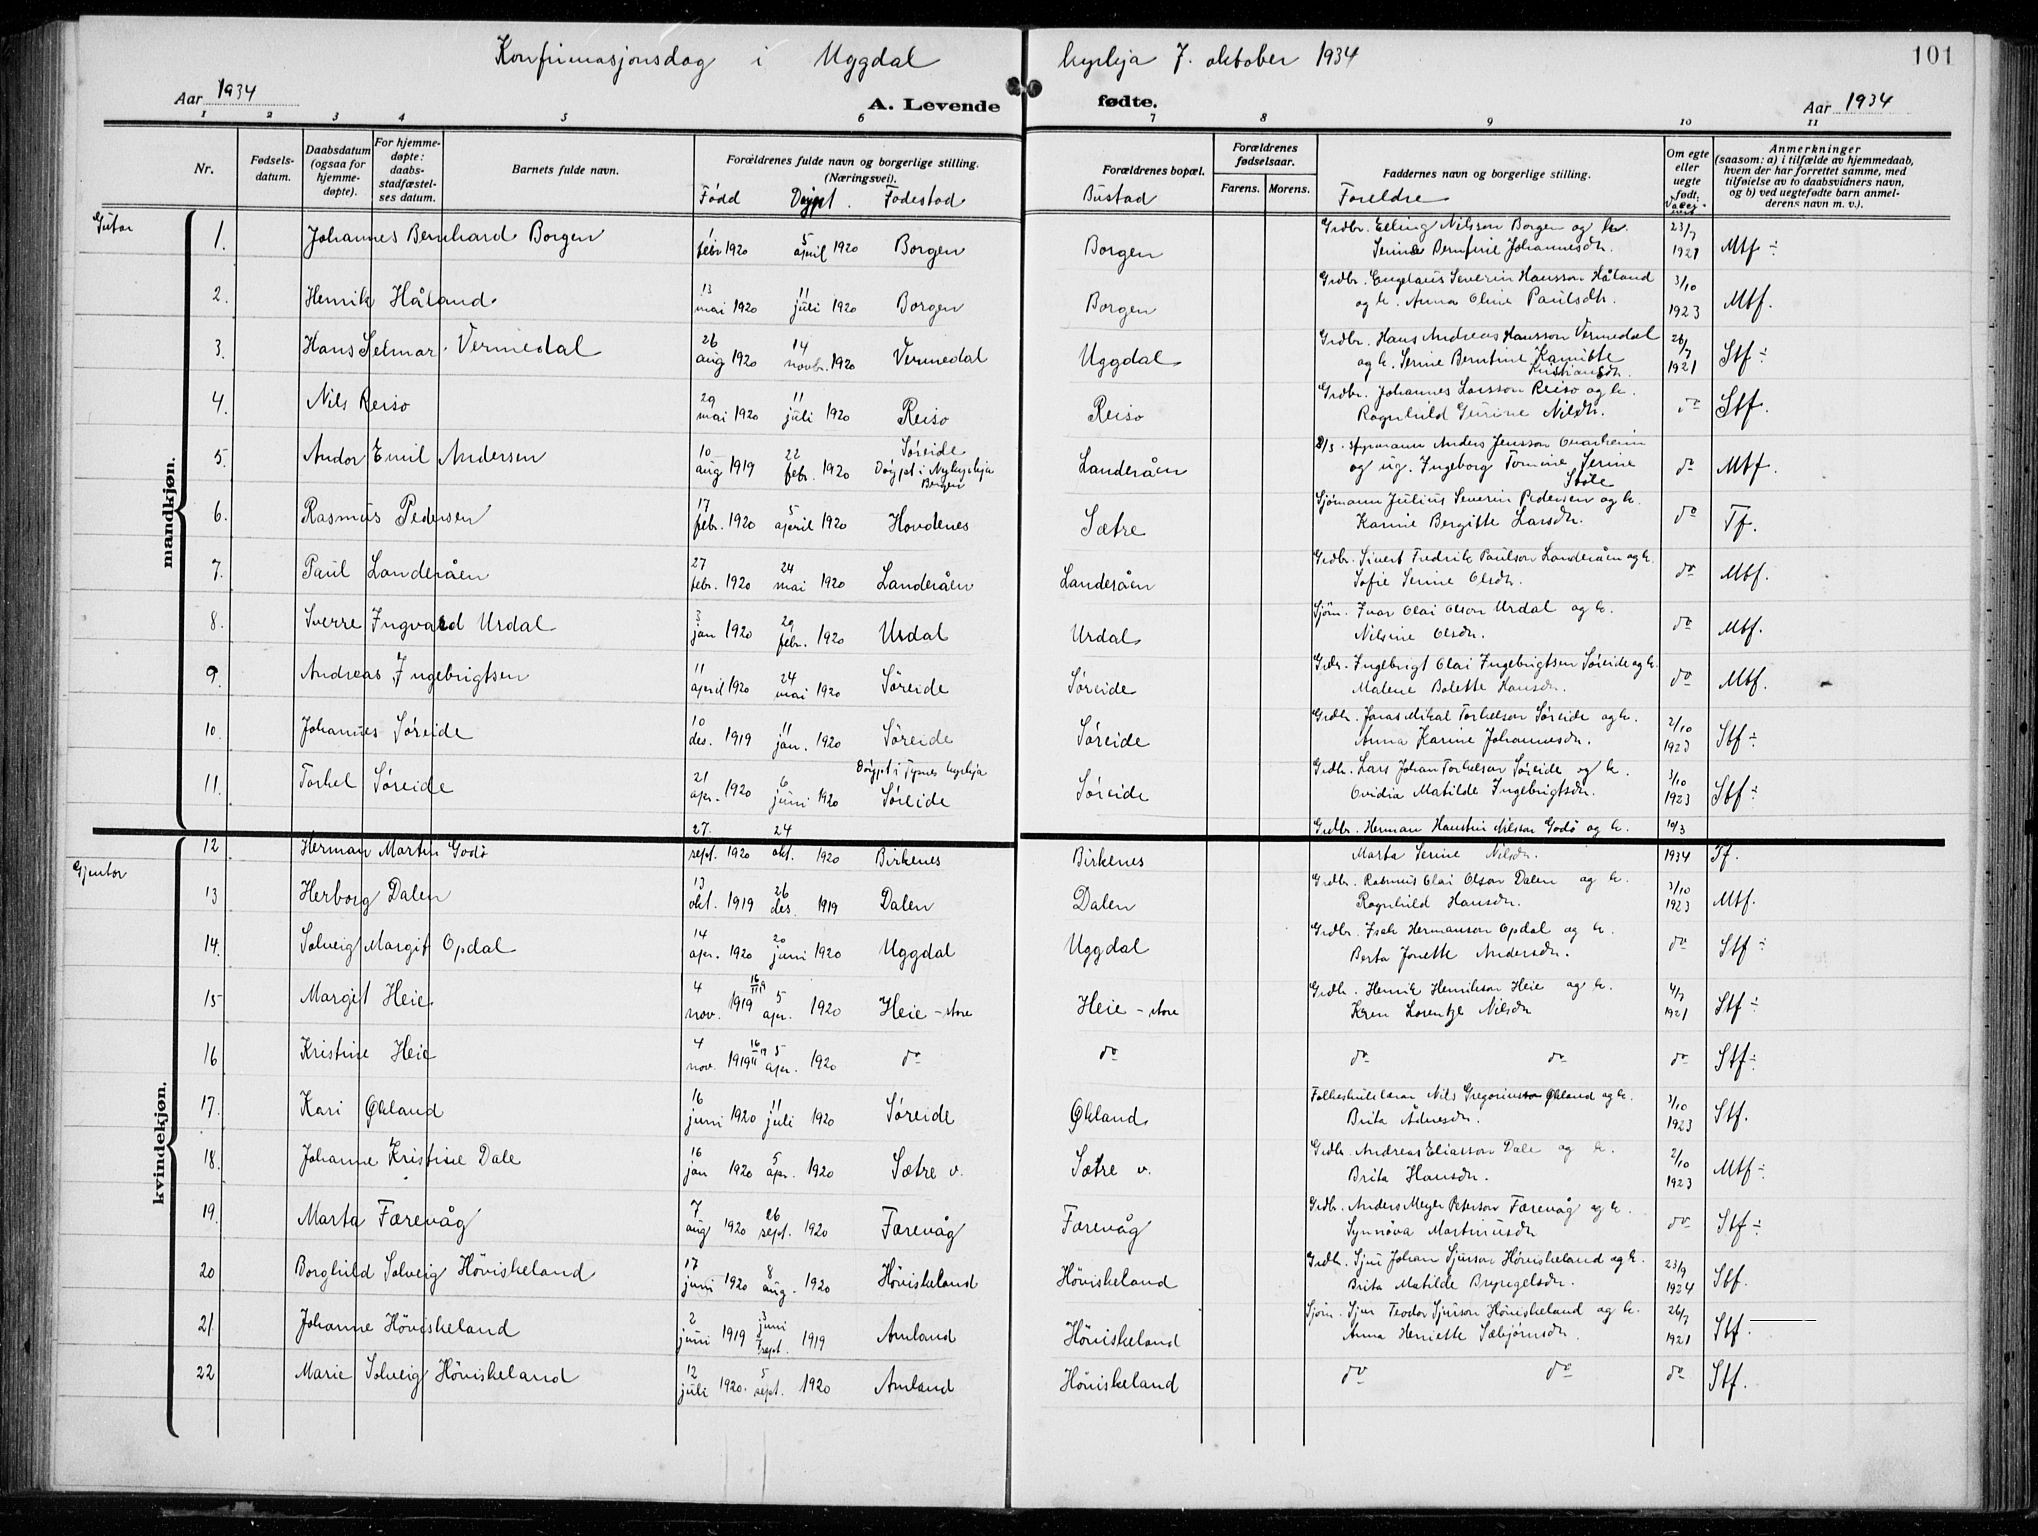 Konfirmasjonsdag i Uggdal kyrkja 7. oktober 1934
101
Aar 1934 A. Levende fødte. Aar 1934
1 2 3 4 5 6 7 8 9 10 11
Nr. Fødsels-datum. Daabsdatum (ogsaa for hjemme-døpte). For hjemme-døpte: daabs-stadfæstel-ses datum. Barnets fulde navn. Forældrenes fulde navn og borgerlige stilling. (Næringsvei). Forældrenes bopæl. Forældrenes fødselsaar. Farens. Morens. Faddernes navn og borgerlige stilling. Om egte eller uegte født. Anmerkninger (saasom: a) i tilfælde av hjemmedaab, hvem der har forrettet samme, med tilføielse av to daabsvidners navn, og b) ved uegtefødte barn anmel-derens navn m. v.).
Født Døypt. Fødestad Bustad Foreldre
Gutar
mandkjøn.
1. Johannes Bernhard Borgen 1 febr 1920 5 april 1920 Borgen Borgen Grdbr. Elling Nilsson Borgen og k. Serine Berntine Johannesdr. 23/7 1921 Mtf ÷
2. Henrik Håland 13 mai 1920 11 juli 1920 Borgen Borgen Grdbr. Englaus Severin Hansson Håland og k. Anna Oline Paulsdtr. 3/10 1923 Mtf.
3. Hans Selmar Vermedal 26 aug 1920 14 novbr. 1920 Vermedal Uggdal Grdbr. Hans Andreas Hansson Vermedal og k. Serine Berntine Kamitte Kristiansdr. 26/7 1921 Stf ÷
4. Nils Reiso 29 mai 1920 11 juli 1920 Reiso Reiso Grdbr. Johannes Larsson Reiso og k. Ragnhild Gurine Nilsdr. do Stf.
5. Andor Emil Andersen 10 aug 1919 22 febr. 1920 Søreide Døypt i Nykyrkja Bergen Landeråen styrmann Anders Jensson og ug. Ingeborg Tomine Serine Støle do Mtf.
6. Rasmus Pedersen 17 febr. 1920 5 april 1920 Hovdenes Sætre Sjømann Julius Severin Pedersen og k. Karine Bergitte Larsdr. do Tf.
7. Paul Landeråen 27 febr. 1920 24 mai 1920 Landeråen Landeråen Grdbr. Sivert Fredrik Paulson Landeråen og k. Sofie Serine Olsdr. do Mtf.
8. Sverre Ingvard Urdal 3 jan 1920 29 febr. 1920 Urdal Urdal Sjøm. Ivar Olai Olson Urdal og k. Nilsine Olsdr. do Mtf.
9. Andreas Ingebrigtsen 11 april 1920 24 mai 1920 Søreide Søreide Grdbr. Ingebrigt Olai Ingebrigtsen Søreide og k. Malene Bolette Hansdr. do Mtf.
10. Johannes Søreide 10 des. 1919 11 jan. 1920 Søreide Søreide Grdbr. Jonas Mikal Torkelson Søreide og k. Anna Karine Johannesdr. 2/10 1923 Stf ÷
11. Torkel Søreide 21 apr. 1920 6 juni 1920 Døypt i Tysnes kyrkja Søreide Søreide Grdbr. Lars Johan Torkelson Søreide og k. Ovidia Matilde Ingebrigtsdr. 3/10 1923 Stf ÷
12 Herman Martin Godø 27. sept. 1920 24 okt. 1920 Birkenes Birkenes Grdbr. Herman Haustin Nilsson Godø og k. Marta Serine Nilsdr. 10/3 1934 Tf.
Gjentor
kvindekjøn.
13 Herborg Dalen 13 okt. 1919 26 des. 1919 Dalen Dalen Grdbr. Rasmus Olai Olson Dalen og k. Ragnhild Hansdr. 3/10 1923 Mtf.
14. Solveig Margit Opdal 14 apr. 1920 20 juni 1920 Uggdal Uggdal Grdbr. Isak Hermanson Opdal og k. Berta Jonette Andersdr. do Stf ÷
15 Margit Heie 4 nov. 1919 16/11 19 5 apr. 1920 Heie - store Heie - store Grdbr. Henrik Henrikson Heie og k. Kren Lorentze Nilsdr 4/7 1921 Stf ÷
16 Kristine Heie 4 nov. 1919 16/11 19 5 apr. 1920 do do do do do Stf ÷
17. Kari Økland 16 juni 1920 11 juli 1920 Søreide Økland Folkeskulelærar Nils Gregoriusson Økland og k. Brita Ådnesdr. 3/10 1923 Stf.
18. Johanne Kristine Dale 16 jan 1920 5 apr. 1920 Sætre v. Sætre v. Grdbr. Andreas Eliasson Dale og k. Brita Hansdr. 2/10 1923 Mtf ÷
19. Marta Færevåg 7 aug 1920 26 sept. 1920 Færevåg Færevåg Grdbr. Anders Meyer Peterson Færevåg og k. Synnøva Martinusdr. do Stf ÷
20 Borghild Solveig Höviskeland 17 juni 1920 8 aug. 1920 Höviskeland Höviskeland Grdbr. Sjur Johan Sjurson Höviskeland og k. Brita Matilde Bryngelsdr. 23/9 1924 Stf.
21. Johanne Höviskeland 2 juni 1919 3 juni sept. 1919 Amland Höviskeland Sjøm. Sjur Teodor Sjurson Höviskeland og k. Anna Henriette Sæbjørnsdr. 26/7 1921 Stf.
22 Marie Solveig Höviskeland 12 juli 1920. 5 sept. 1920 Amland Höviskeland do do do Stf.